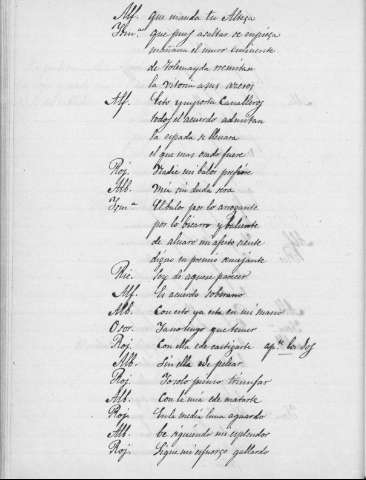 Alf. que manda tu Alteza
Ism.ª que pues asaltar se empieza
mañana el muro eminente
de Tolemayda remitan
la vitoria a sus azeros
Alf. Esto ymporta Cavalleros
todos el acuerdo admitan
la espada se llevara
el que mas osado fuere
Roj. Nadie mi balor prefiere
Alb. Mia sin duda sera
Ism.ª El balor por lo arrogante
por lo bizarro y baliente
de alvaro mi afecto siente
digno en premio semejante
Ric. Soy de aquese parecer
Alf. Es acuerdo soberano
Alb. Con esto ya esta en mi mano
Osor. Ya no tengo que temer
Roj. Con ella e de castigarte ap.te los dos
Alb. Sin ella e de pelear
Roj. Yo solo pienso triunfar
Alb. Con la mia e de matarte
Roj. En la media luna aguardo
Alb. be siguiendo mi esplendor
Roj. Sigue mi esfuerço gallardo